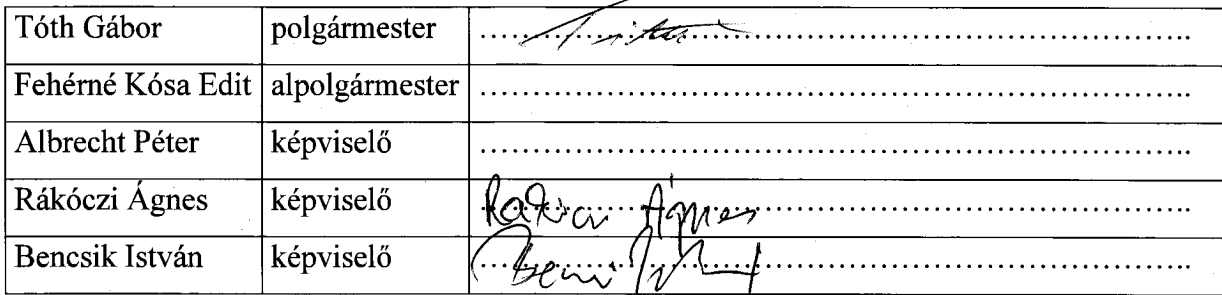 Tóth Gábor polgármester ........................................
Fehérné Kósa Edit alpolgármester ........................................
Albrecht Péter képviselő ........................................
Rákóczi Ágnes képviselő Ágnes
Bencsik István képviselő ........................................